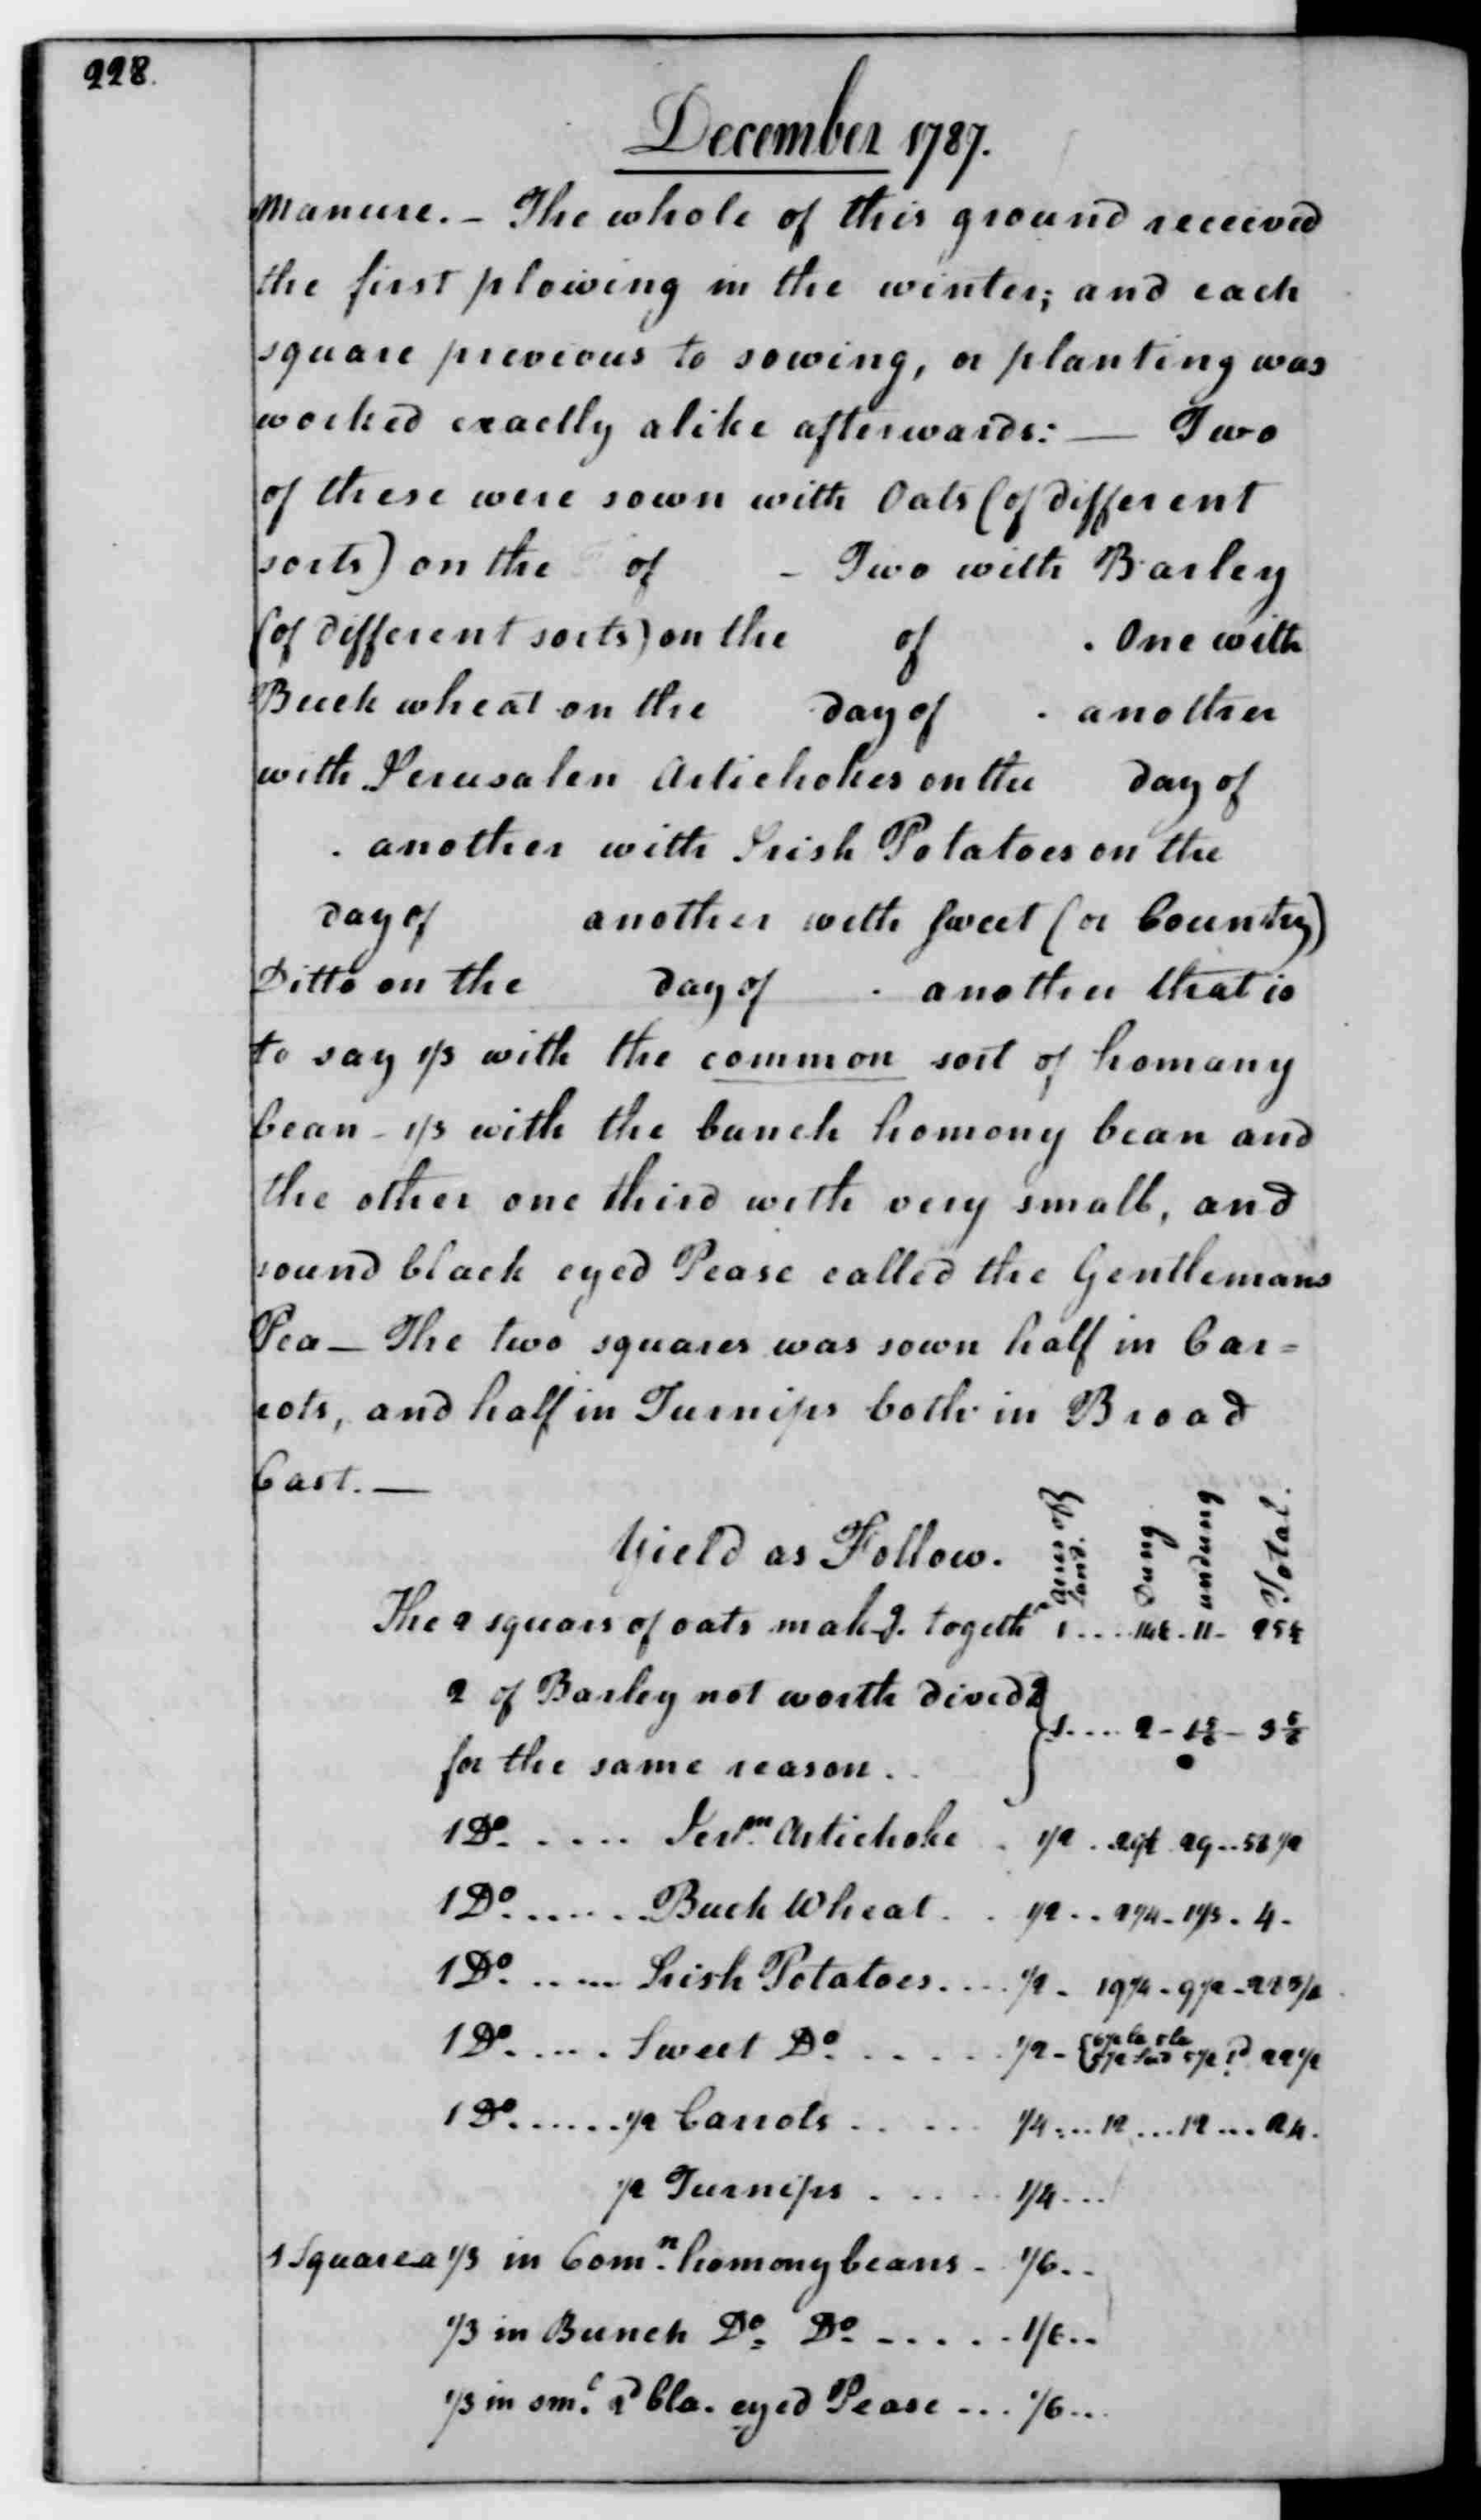 228.
December 1787.
manure. - The whole of this ground received
the first plowing in the winter; and each
square previous to sowing, or planting was
worked exactly alike afterwards: — Two
of these were sown with Oats (of different
sorts) on the of - Two with Barley
(of different sorts) on the of . One with
Buck wheat on the day of . another
with Jerusalen Artichokes on the day of
. another with Irish Potatoes on the
day of another with sweet (or Country)
Ditto on the day of . another that is
to say 1/3 with the common sort of homany
bean - 1/3 with the bunch homony bean and
the other one third with very small, and
round black eyed Pease called the Gentlemans
Pea — The two squares was sown half in Car=
rots, and half in Turnips both in Broad
Cast. —
Yield as Follow.
Acres of Land.
Dung
undung
Total.
The 2 squars of oats mak.g. togethr 1 .... 14½ - 11 - 25½
2 of Barley not worth dived.g
for the same reason. } 1 .... 2 - 1 5/6 - 3 5/6
1 Do. ..... Jerm. Artichoke . 1/2 . 29½ 29 .. 58 1/2
1 Do. ...... Buck Wheat . . 1/2 .. 2 1/4 - 1 1/3 . 4 -
1 Do. ..... Irish Potatoes .... 1/2 - 9 1/2
1 Do. .... Sweet Do. ..... 1/2 - 22 1/2
1 Do. ...... 1/2 Carrots ..... 1/4 ... 12 ... 12 ... 24.
1/2 Turnips ..... 1/4 ...
1 Square a 1/3 in Comn. homony beans - 1/6 ..
1/3 in Bunch Do. Do. ..... 1/6 ..
1/3 in sml. rd bla. eyed Pease ... 1/6 ...